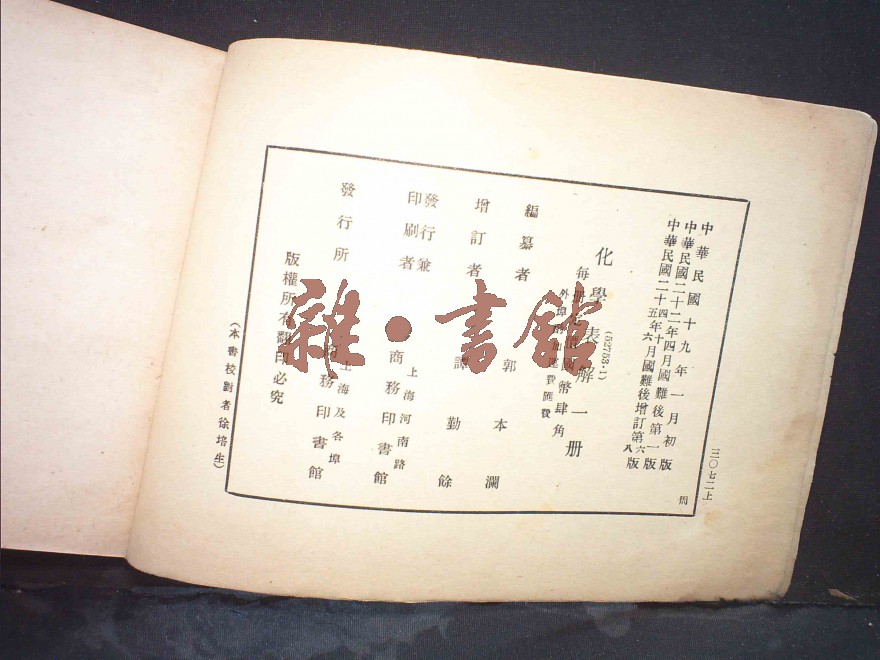 三〇七二上
中華民國十九年一月初版
中華民國二十二年四月國難後第一版
中華民國二十四年十月國難後增訂第六版
五年六月 八
(52753·1)
化學表解一册
每册定價國幣肆角
外埠酌加運費匯費
編纂者 郭本瀾
增訂者 譚勤餘
發行兼印刷者 上海河南路 商務印書館
發行所 上海及各埠 商務印書館
版權所有翻印必究
(本書校對者徐培生)
雜·書館